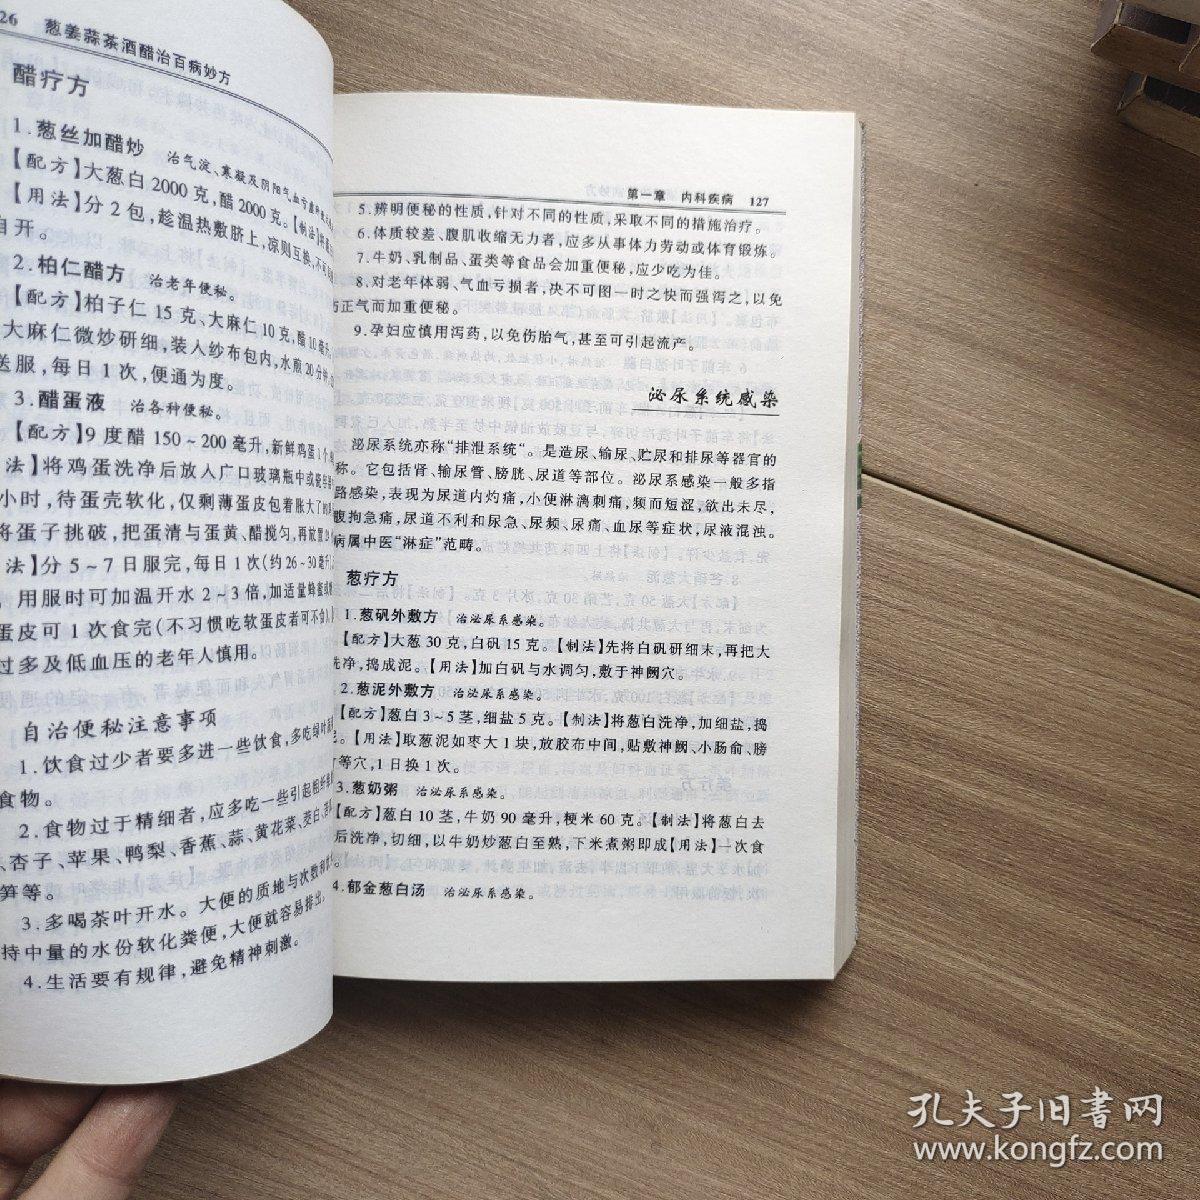 26 葱姜蒜茶酒醋治百病妙方
醋疗方
1.葱丝加醋炒 治气淀、寒凝及阴阳气血亏虚
【配方】大葱白2000克,醋2000克。【制法】
【用法】分2包,趁温热敷脐上,凉则互换,不可
自开。
2.柏仁醋方 治老年便秘。
【配方】柏子仁15克、大麻仁10克,醋10毫升
大麻仁微炒研细,装人纱布包内,水煎20分钟,
送服,每日1次,便通为度。
3.醋蛋液 治各种便秘。
【配方】9度醋150~200毫升,新鲜鸡蛋1个
法】将鸡蛋洗净后放人广口玻璃瓶中或
小时,待蛋壳软化,仅剩薄蛋皮包着胀大了的
将蛋子挑破,把蛋清与蛋黄、醋搅匀,再放置
法】分5~7日服完,每日1次(约26~30毫升)
用服时可加温开水2~3倍,加适量蜂蜜或
蛋皮可1次食完(不习惯吃软蛋皮者可不食)
过多及低血压的老年人慎用。
自治便秘注意事项
1.饮食过少者要多进一些饮食,多吃绿叶
食物。
2.食物过于精细者,应多吃一些引起粗纤
、杏子、苹果、鸭梨、香蕉、蒜、黄花菜、茭白、
笋等。
3.多喝茶叶开水。大便的质地与次数和
持中量的水份软化粪便,大便就容易排出。
4.生活要有规律,避免精神刺激。
第一章 内科疾病 127
5.辨明便秘的性质,针对不同的性质,采取不同的措施治疗。
6.体质较差、腹肌收缩无力者,应多从事体力劳动或体育锻炼。
7.牛奶、乳制品、蛋类等食品会加重便秘,应少吃为佳。
8.对老年体弱、气血亏损者,决不可图一时之快而强泻之,以免
伤正气而加重便秘。
9.孕妇应慎用泻药,以免伤胎气,甚至可引起流产。
泌尿系统感染
泌尿系统亦称“排泄系统”。是造尿、输尿、贮尿和排尿等器官的
称。它包括肾、输尿管、膀胱、尿道等部位。泌尿系感染一般多指
路感染,表现为尿道内灼痛,小便淋漓刺痛,频而短涩,欲出未尽,
腹拘急痛,尿道不利和尿急、尿频、尿痛、血尿等症状,尿液混浊。
病属中医“淋症”范畴。
葱疗方
1.葱矾外敷方 治泌尿系感染。
【配方】大葱30克,白矾15克。【制法】先将白矾研细末,再把大
洗净,捣成泥。【用法】加白矾与水调匀,敷于神阙穴。
2.葱泥外敷方 治泌尿系感染。
【配方】葱白3~5茎,细盐5克。【制法】将葱白洗净,加细盐,捣
泥。【用法】取葱泥如枣大1块,放胶布中间,贴敷神阙、小肠俞、膀
等穴,1日换1次。
3.葱奶粥 治泌尿系感染。
【配方】葱白10茎,牛奶90毫升,粳米60克。【制法】将葱白去
后洗净,切细,以牛奶炒葱白至熟,下米煮粥即成【用法】一次食
4.郁金葱白汤 治泌尿系感染。
孔夫子旧书网
www.kongfz.com